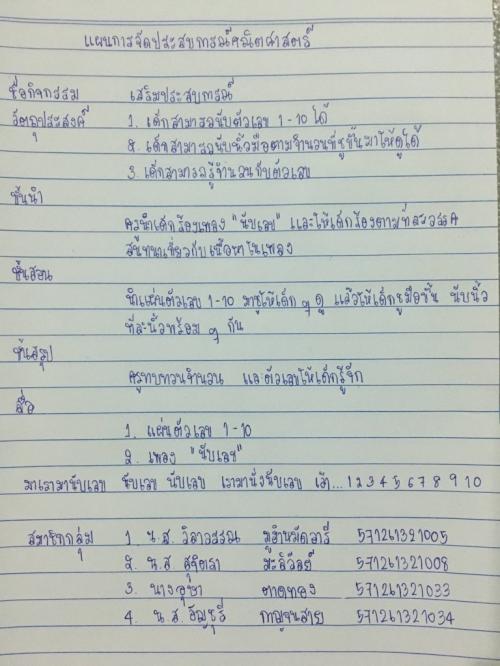 แผนการจัดประสบการณ์คณิตศาสตร์
ชื่อกิจกรรม เสริมประสบการณ์
วัตถุประสงค์ 1. เด็กสามารถนับตัวเลข 1-10 ได้
2. เด็กสามารถนับนิ้วมือตามจำนวนที่ชูขึ้นมาให้ดูได้
3. เด็กสามารถรู้จำนวนกับตัวเลข
ขั้นนำ
ครูนำเด็กร้องเพลง "นับเลข" และให้เด็กร้องตามทีละวรรค
สนทนาเกี่ยวกับเนื้อหาในเพลง
ขั้นสอน
นำแผ่นตัวเลข 1-10 มาชูให้เด็ก ๆ ดู แล้วให้เด็กชูมือขึ้น นับนิ้ว
ทีละนิ้วพร้อม ๆ กัน
ขั้นสรุป
ครูทบทวนจำนวน และตัวเลขให้เด็กรู้จัก
สื่อ
1. แผ่นตัวเลข 1-10
2. เพลง "นับเลข"
มาเรามานับเลข นับเลข นับเลข เรามานั่งนับเลข เอ้า...1 2 3 4 5 6 7 8 9 10
สมาชิกกลุ่ม 1. น.ส. วิลาวรรณ 571261321005
2. น.ส สุจิตรา มะลิวัลย์ 571261321008
3. นางอุษา ตาดทอง 571261321033
4. น.ส. ธัญชุรี กาญจนสาย 571261321034